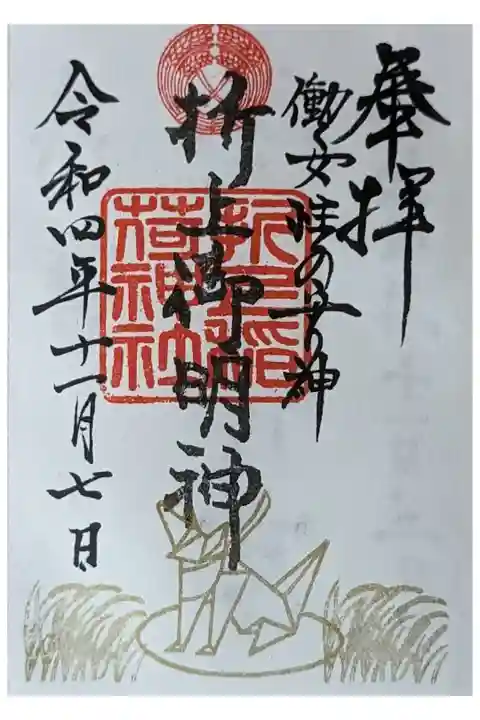 奉拝
働く女性の守り神
折上御明神
折上稲荷神社
令和四年十一月七日